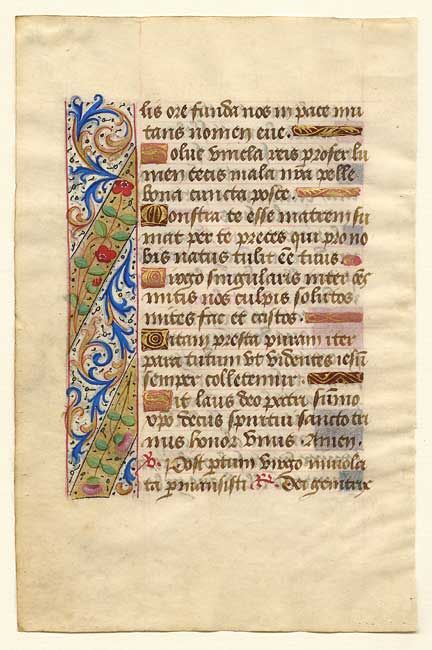 lis ore funda nos in pace mu
tans nomen eue.
Solue vincla reis profer lu
men cecis mala nr̄a pelle
bona cuncta posce.
Monstra te esse matrem su
mat per te preces qui pro no
bis natus tulit eē tuus
Uirgo singularis inter oēs
mitis nos culpis solutos
mites fac et castos.
Uitam presta puram iter
para tutum vt videntes iesū
semper colletemur.
Sit laus deo patri sūmo
xpo decus spiritui sancto tri
nus honor vnus. Amen.
v. Post partum virgo inuiola
ta permansisti R. Dei genitrix